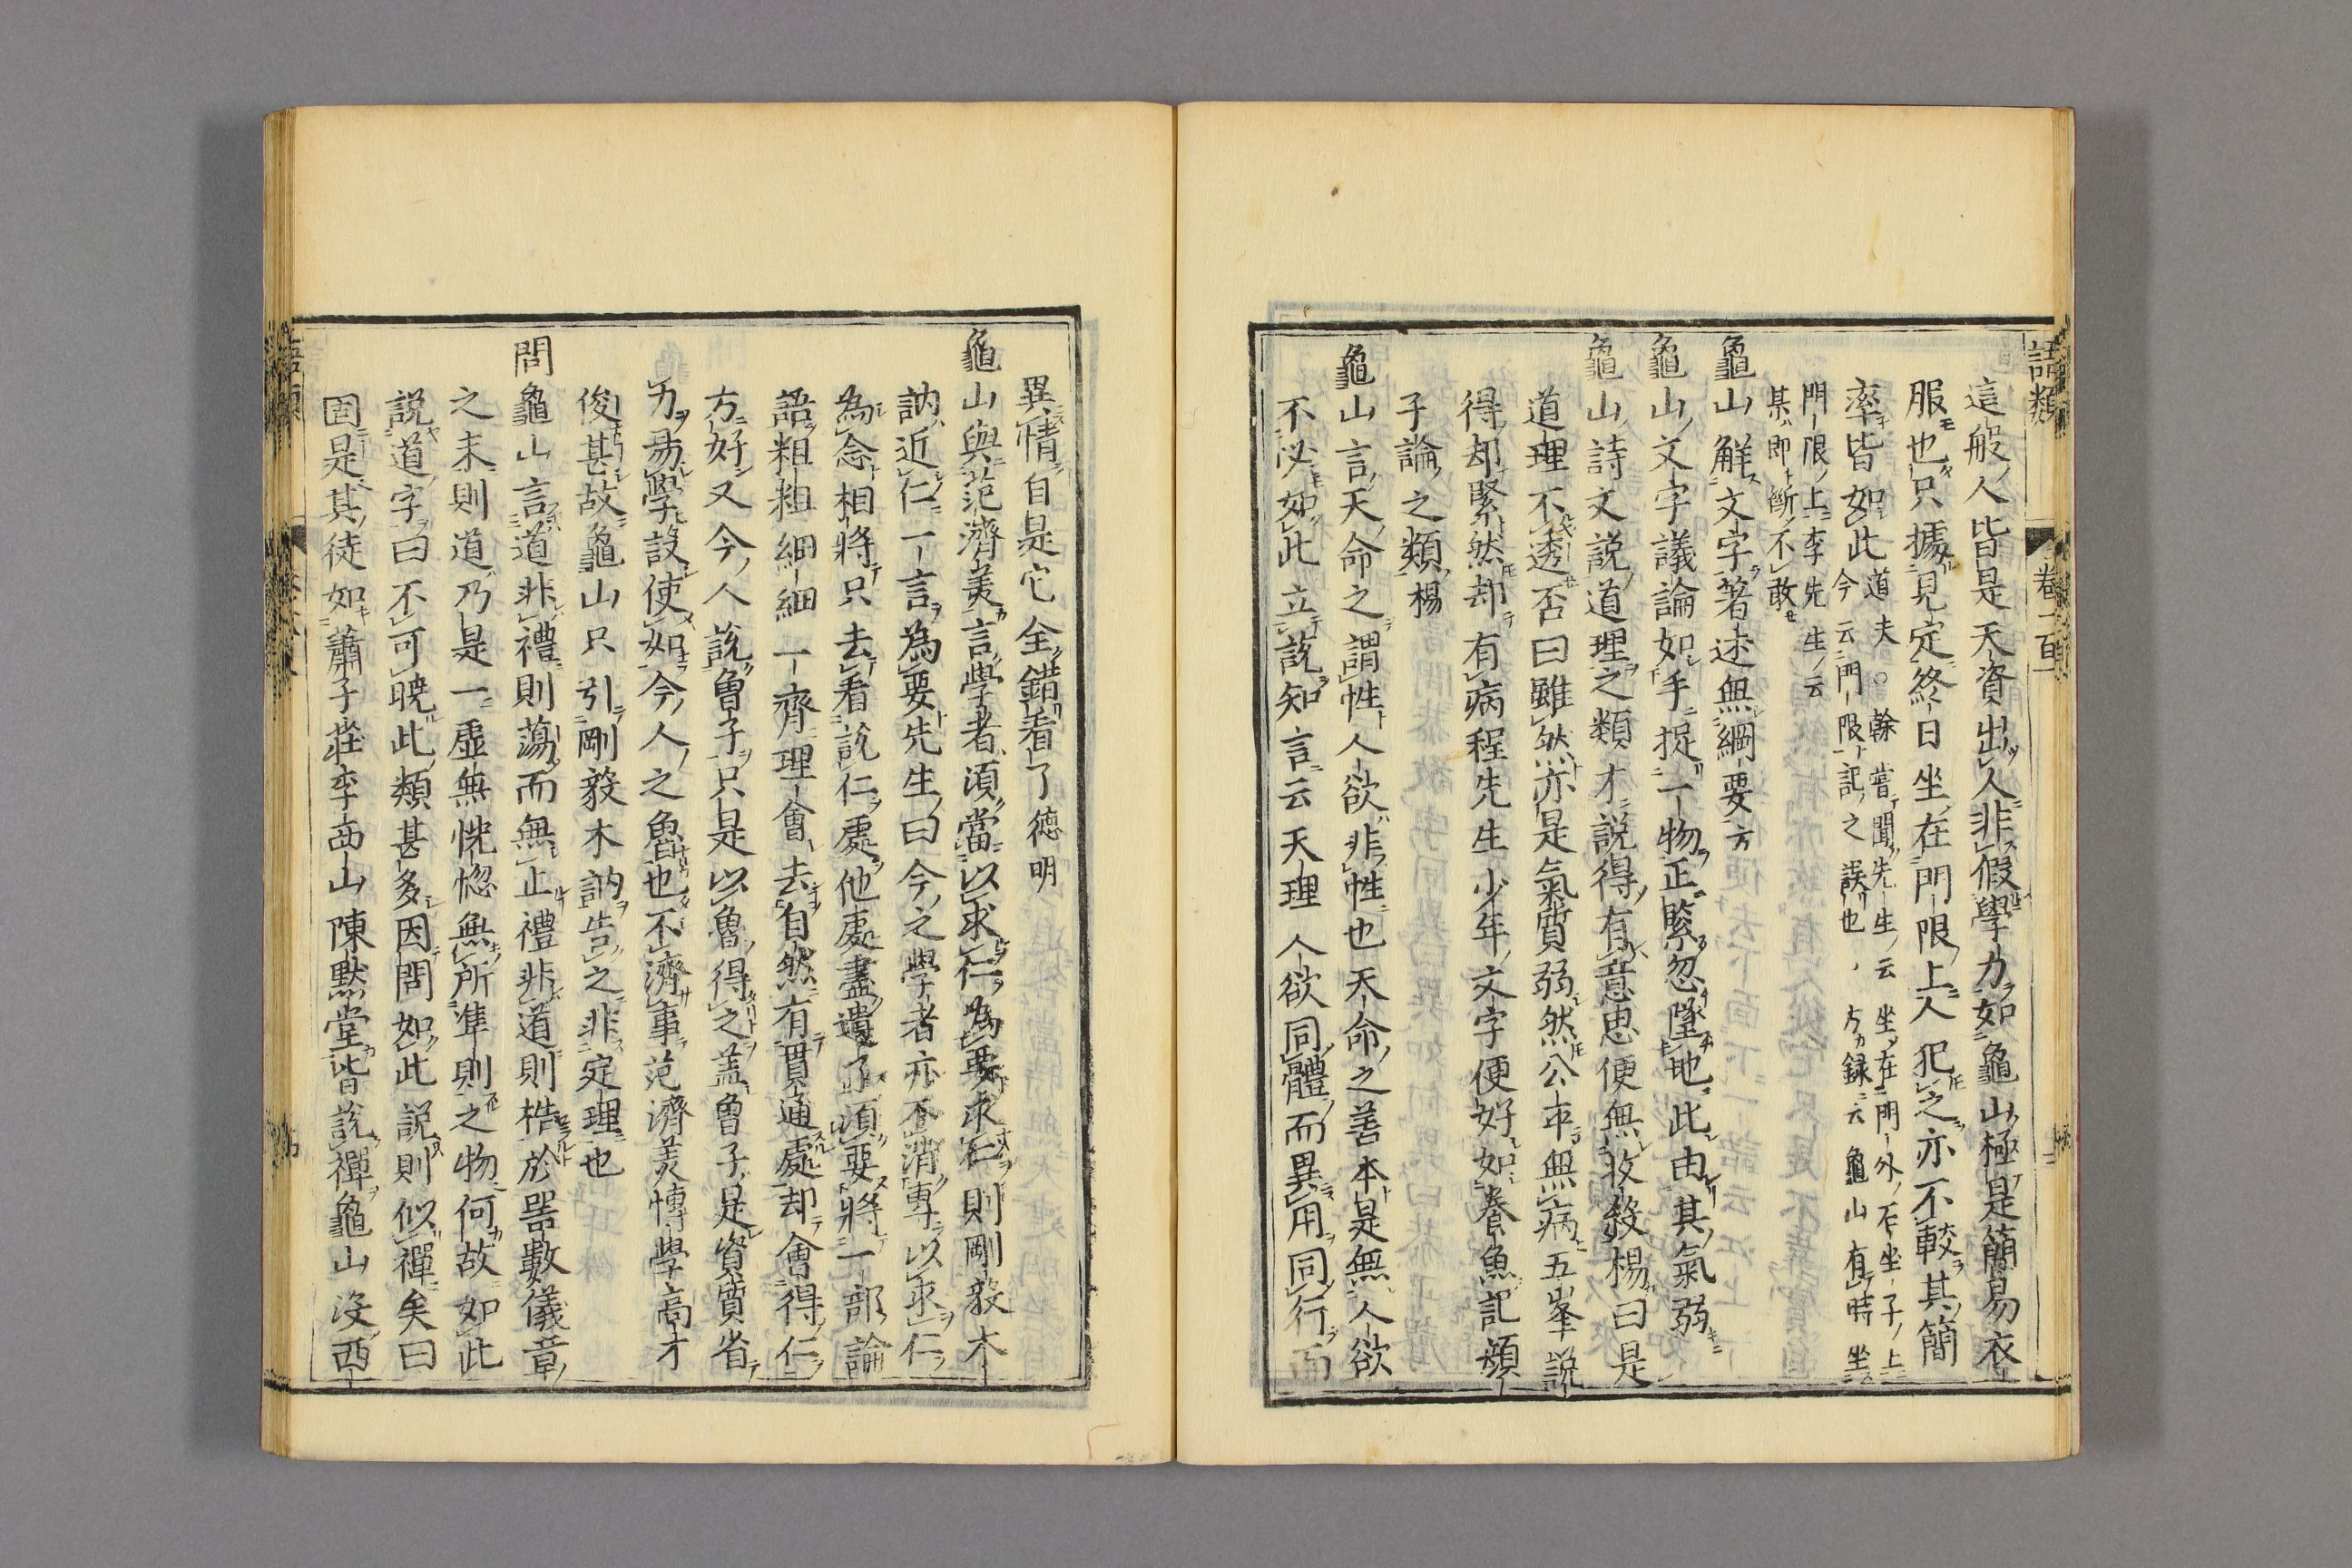 語類
卷一百一
這般人皆是天資出人非假學力如龜山極是簡易衣
服也只據見定終日坐在門限上人犯之亦不較其簡
率皆如此道夫○榦嘗聞先生云坐在門外石坐子上
今云門限記之誤也方録云龜山有時坐
門限上李先生云
某即斷不敢
龜山解文字著述無綱要方
龜山文字議論如手捉一物正緊忽墜地此由其氣弱
龜山詩文說道理之類才說得有意思便無收殺楊曰是
道理不透否曰雖然亦是氣質弱然公平無病五峯說
得却緊然却有病程先生少年文字便好如養魚記顔
子論之類楊
龜山言天命之謂性人欲非性也天命之善本是無人欲
不必如此立說知言云天理人欲同體而異用同行而
異情自是它全錯看了德明
龜山與范濟美言學者須當以求仁為要求仁則剛毅木
訥近仁一言為要先生曰今之學者亦不消專以求仁
為念相將只去看說仁處他處盡遺了須要將一部論
語粗粗細細一齊理會去自然有貫通處却會得仁
方好又今人說魯子只是以魯得之蓋魯子是資質省
力易學設使如今人之魯也不濟事范濟美博學高才
俊甚故龜山只引剛毅木訥告之非定理也
問龜山言道非禮則蕩而無止禮非道則梏於器數儀章
之末則道乃是一虛無恍惚無所準則之物何故如此
說道字曰不可曉此類甚多因問如此說則似禪矣曰
固是其徒如蕭子莊李西山陳默堂皆說禪龜山沒西
語類